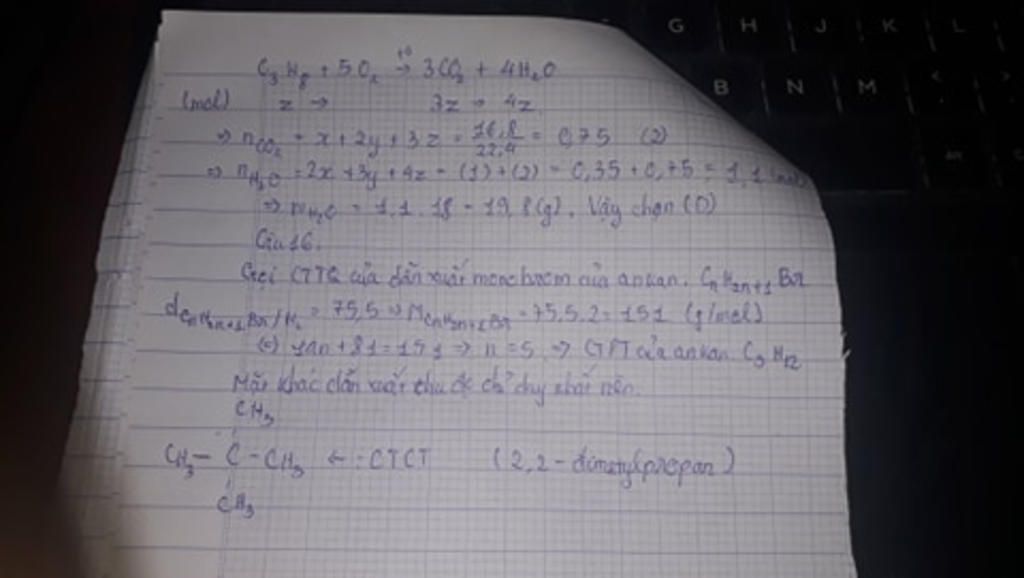 G H J K L
B N M < >
Alt Ctrl
C₃H₈ + 5O₂ →(t°) 3CO₂ + 4H₂O
(mol) z → 3z → 4z
⇒ nCO₂ = x + 2y + 3z = 16,8/22,4 = 0,75 (2)
⇒ nH₂O = 2x + 3y + 4z = (1) + (2) = 0,35 + 0,75 = 1,1 (mol)
⇒ mH₂O = 1,1 . 18 = 19,8 (g). Vậy chọn (D)
Câu 16.
Gọi CTTQ của dẫn xuất monobrom của ankan. CₙH₂ₙ₊₁Br
dCₙH₂ₙ₊₁Br/H₂ = 75,5 ⇒ MCₙH₂ₙ₊₁Br = 75,5.2 = 151 (g/mol)
(=) 14n + 81 = 151 ⇒ n = 5 ⇒ CTPT của ankan. C₅H₁₂
Mặt khác dẫn xuất thu đc chỉ duy nhất nên.
CH₃
CH₃ – C – CH₃ ← : CTCT (2,2 - đimetylpropan)
CH₃